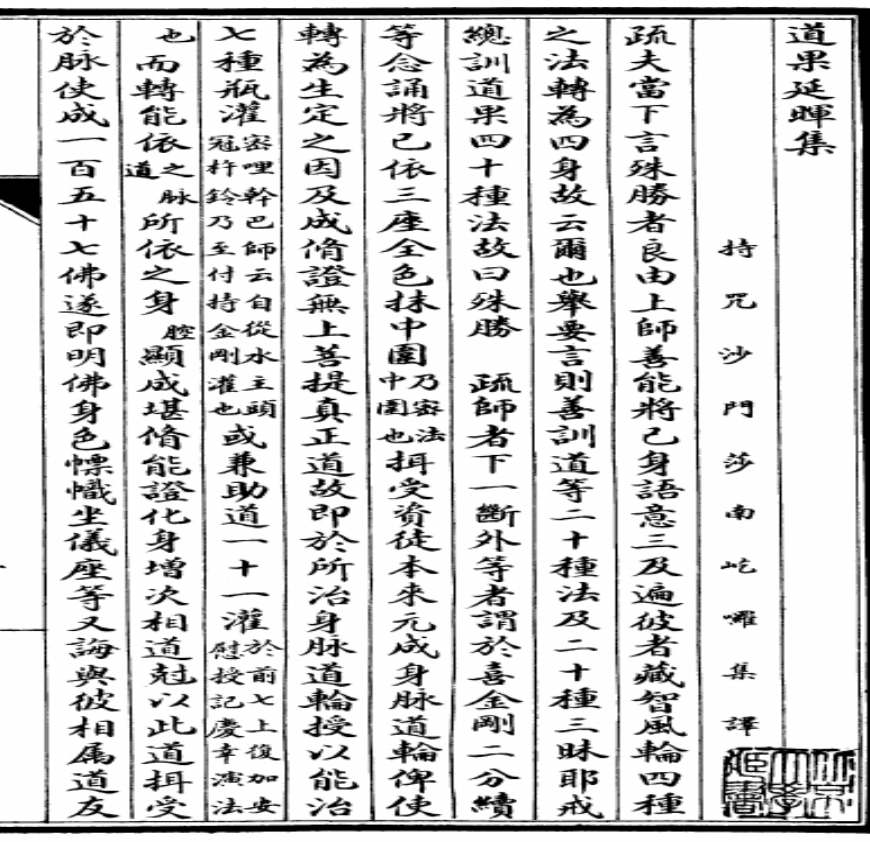 道果延暉集
持咒沙門莎南屹囉集譯
疏夫當下言殊勝者良由上師善能將己身語意三及遍彼者藏智風輪四種
之法轉為四身故云爾也舉要言則善訓道等二十種法及二十種三昧耶戒
總訓道果四十種法故曰殊勝　疏師者下一斷外等者謂於喜金剛二分續
等念誦將已依三座全色抹中圍乃密法中圍也揖受資徒本來元成身脉道輪俾使
轉為生定之因及成脩證無上菩提真正道故即於所治身脉道輪授以能治
七種瓶灌密哩幹巴師云自從水主頭冠杵鈴乃至付持金剛灌也或兼助道一十一灌於前七上復加安慰授記慶幸演法
也而轉能依之道脉所依之身腔顯成堪脩能證化身增次相道尅以此道揖受
於脉使成一百五十七佛遂即明佛身色幖幟坐儀座等又誨與彼相属道友